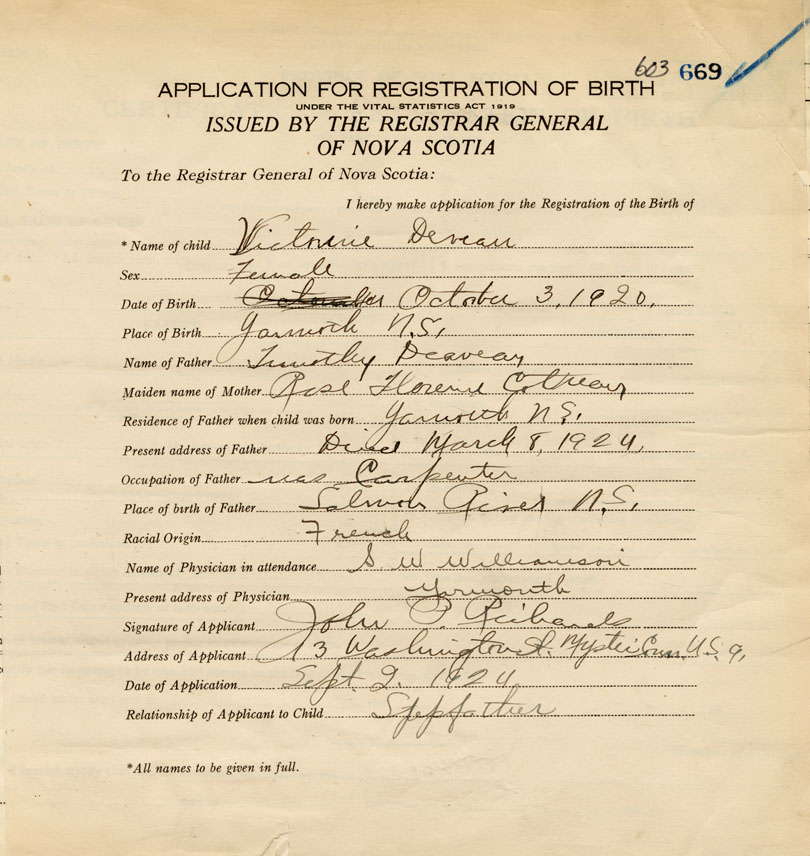 603 669
APPLICATION FOR REGISTRATION OF BIRTH
UNDER THE VITAL STATISTICS ACT 1919
ISSUED BY THE REGISTRAR GENERAL
OF NOVA SCOTIA
To the Registrar General of Nova Scotia:
I hereby make application for the Registration of the Birth of
* Name of child Victorine Deveau
Sex Female
Date of Birth October 3, 1920.
Place of Birth Yarmoth N.S.
Name of Father Timothy Deaveau
Maiden name of Mother Rose Florene
Residence of Father when child was born Yarmoth N.S.
Present address of Father Died March 8, 1924.
Occupation of Father was Carpenter
Place of birth of Father Salmon River N.S.
Racial Origin French
Name of Physician in attendance S. W Williamson
Present address of Physician Yarmouth
Signature of Applicant John P. Richards
Address of Applicant 13 Washington St. Mystic Conn. U.S.A.
Date of Application Sept. 2. 1924
Relationship of Applicant to Child Stepfather
*All names to be given in full.